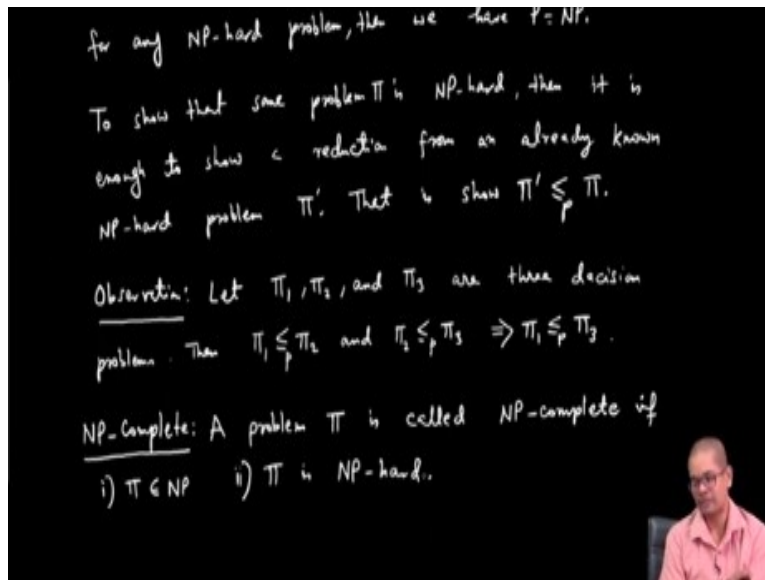 for any NP-hard problem, then we have P = NP.
To show that some problem Π is NP-hard, then it is
enough to show a reduction from an already known
NP-hard problem Π'. That is show Π' ≤p Π.
Observation: Let Π₁, Π₂, and Π₃ are three decision
problems. Then Π₁ ≤p Π₂ and Π₂ ≤p Π₃ ⇒ Π₁ ≤p Π₃.
NP-Complete: A problem Π is called NP-complete if
i) Π ∈ NP ii) Π is NP-hard..